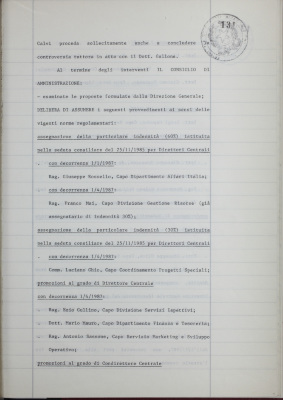 131
Calvi proceda sollecitamente anche a concludere la
controversia tuttora in atto con il Dott. Pallone.
Al termine degli interventi IL CONSIGLIO DI
AMMINISTRAZIONE:
- esaminate le proposte formulate dalla Direzione Generale;
DELIBERA DI ASSUMERE i seguenti provvedimenti ai sensi delle
vigenti norme regolamentari:
assegnazione della particolare indennità (60%) istituita
nella seduta consiliare del 25/11/1985 per Direttori Centrali
- con decorrenza 1/1/1987:
Rag. Giuseppe, Capo Dipartimento Affari Italia;
- con decorrenza 1/4/1987:
Rag. Franco, Capo Divisione Gestione Rischi (già
assegnatario di indennità 30%);
assegnazione della particolare indennità (30%) istituita
nella seduta consiliare del 25/11/1985 per Direttori Centrali
- con decorrenza 1/4/1987:
- Comm. Luciano, Capo Coordinamento Progetti Speciali;
promozioni al grado di Direttore Centrale
con decorrenza 1/4/1987:
- Rag. Capo Divisione Servizi Ispettivi;
- Dott. Mario, Capo Dipartimento Finanza e Tesoreria;
- Rag. Antonio, Capo Servizio Marketing e Sviluppo
Operativo;
promozioni al grado di Condirettore Centrale